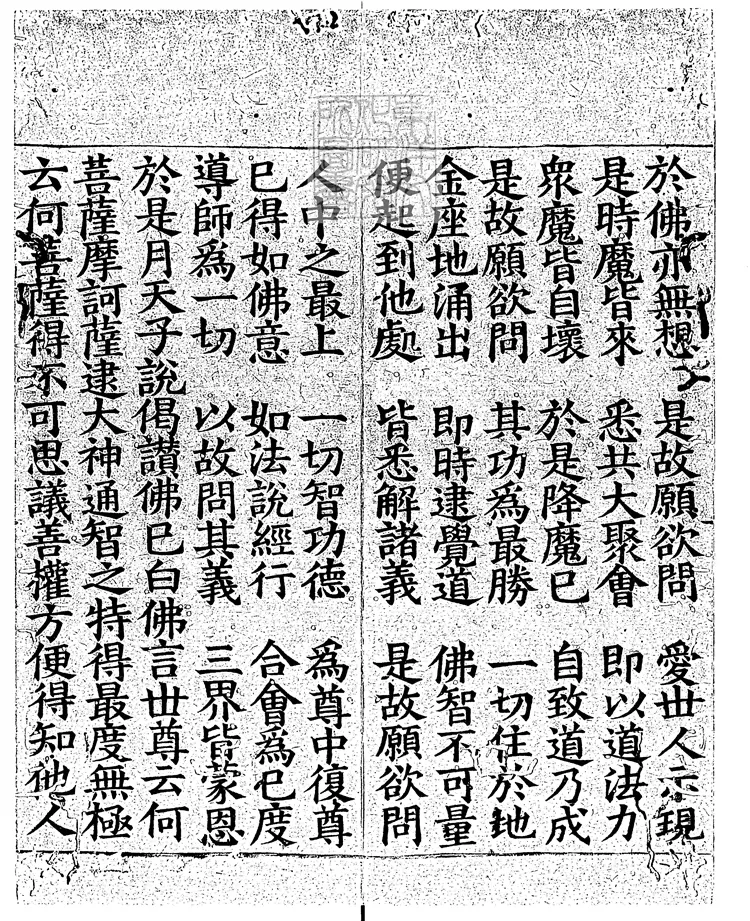 於佛亦無想 是故願欲問 愛世人示現
是時魔皆來 悉共大聚會 即以道法力
衆魔皆自壞 於是降魔已 自致道乃成
是故願欲問 其功爲最勝 一切住於地
金座地涌出 即時逮覺道 佛智不可量
便起到他處 皆悉解諸義 是故願欲問
人中之最上 一切智功德 爲尊中復尊
已得如佛意 如法說經行 合會爲已度
導師爲一切 以故問其義 三界皆蒙恩
於是月天子說偈讃佛已白佛言世尊云何
菩薩摩訶薩逮大神通智之特得最度無極
云何菩薩得不可思議善權方便得知他人